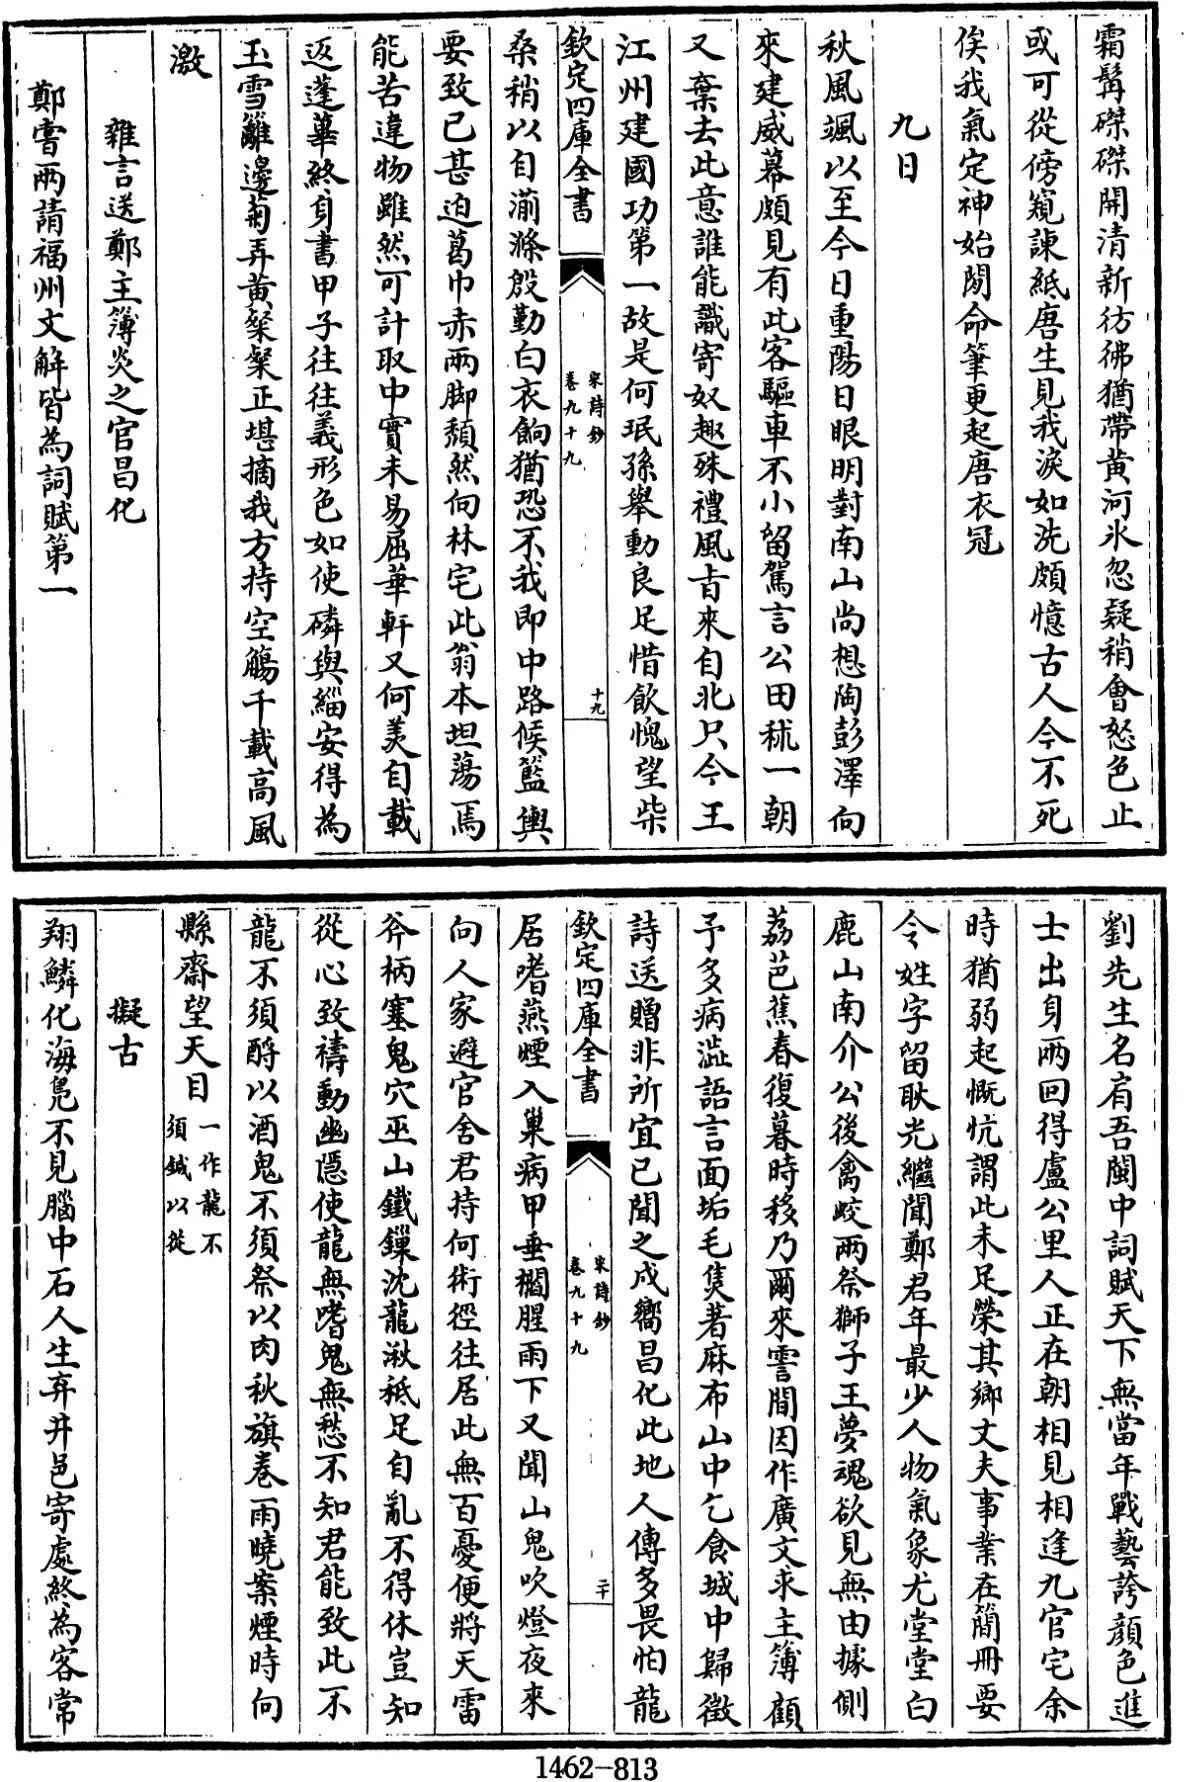 霜髯磔磔開清新彷彿猶帶黄河氷忽疑稍㑹怒色止
或可從傍窺諫紙唐生見我淚如洗頗憶古人今不死
俟我氣定神始閒命筆更起唐衣冠
九日
秋風颯以至今日重陽日眼明對南山尚想陶彭澤向
來建威幕頗見有此客驅車不小留駕言公田秫一朝
又棄去此意誰能識寄奴趣殊禮風旨來自北只今王
江州建國功第一故是何珉孫舉動良足惜飲愧望柴
欽定四庫全書
宋詩鈔
卷九十九
十九
桑稍以自湔滌殷勤白衣餉猶恐不我即中路候籃輿
要致已甚迫葛巾赤兩脚頽然向林宅此翁本坦蕩焉
能苦違物雖然可計取中實未易屈華軒又何羙自載
返蓬蓽終身書甲子往往義形色如使磷與緇安得為
玉雪籬邊菊弄黄粲粲正堪摘我方持空觴千載髙風
激
雜言送鄭主簿炎之官昌化
鄭嘗兩請福州文解皆為詞賦第一
劉先生名有吾閩中詞賦天下無當年戰藝誇顔色進
士出身兩回得盧公里人正在朝相見相逢九官宅余
時猶弱起慨忼謂此未足榮其鄉丈夫事業在簡冊要
令姓字留耿光繼聞鄭君年最少人物氣象尤堂堂白
鹿山南介公後禽峧兩祭獅子王夢魂欲見無由據側
荔芭蕉春復暮時移乃爾來霅間因作廣文求主簿顧
予多病澁語言面垢毛焦著麻布山中乞食城中歸徵
詩送贈非所宜已聞之戍嚮昌化此地人傳多畏怕龍
欽定四庫全書
宋詩鈔
卷九十九
二十
居嗜燕煙入巢病甲垂襴腥雨下又聞山鬼吹燈夜來
向人家避官舍君持何術徑往居此無百憂便將天雷
斧柄塞鬼穴巫山鐵鏁沈龍湫祗足自亂不得休豈知
從心致禱動幽隠使龍無嗜鬼無愁不知君能致此不
龍不須酹以酒鬼不須祭以肉秋旗卷雨曉案煙時向
縣齋望天目一作龍不
須鍼以從
擬古
翔鱗化海鳬不見腦中石人生弃井邑寄處終為客常
1462-813